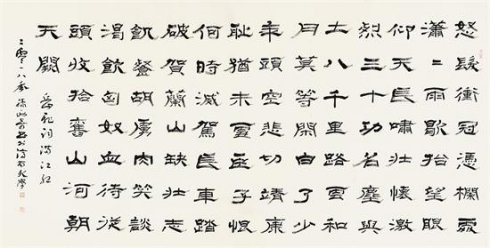 怒髮衝冠憑闌處
瀟〻雨歇抬望眼
仰天長嘯壯懷激
烈三十功名塵與
土八千里路雲和
月莫等閒白了少
年頭空悲切靖康
耻猶未雪臣子恨
何時滅駕長車踏
破賀蘭山缺壯志
飢餐胡虜肉笑談
渴飲匈奴血待從
頭收拾舊山河朝
天闕
岳飛詞滿江紅
二零一八年